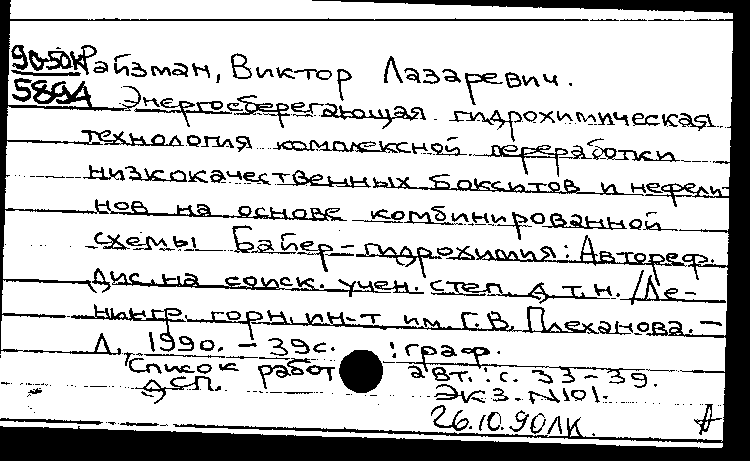 90-50K Райзман, Виктор Лазаревич.
5894 Энергосберегающая гидрохимическая
технология комплексной переработки
низкокачественных бокситов и нефели-
нов на основе комбинированной
схемы Байер-гидрохимия: Автореф.
дис. на соиск. учен. степ. д.т.н. /Ле-
нингр. горн. ин-т им. Г.В. Плеханова. –
Л., 1990. – 39с. : граф.
Список работ авт.: с. 33-39.
ДСП. Экз. N101.
26.10.90ЛК.